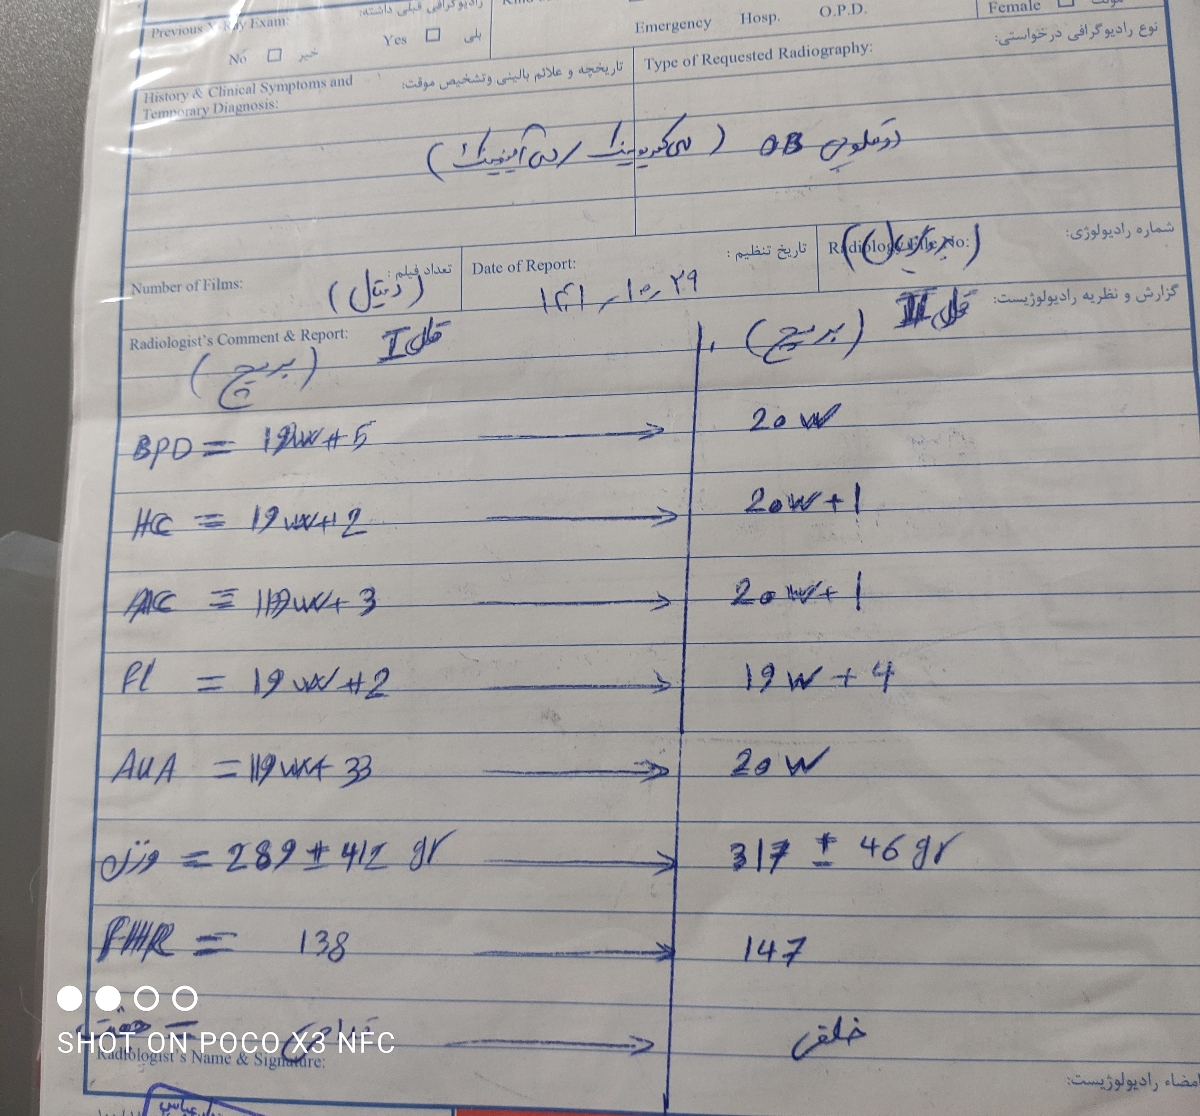 Previous X-Ray Exam: رادیوگرافی قبلی داشته:
No خیر Yes بلی
Emergency Hosp. O.P.D. Female
History & Clinical Symptoms and Temporary Diagnosis: تاریخچه و علائم بالینی وتشخیص موقت:
Type of Requested Radiography: نوع رادیوگرافی درخواستی:
دوقلویی OB (دی کوریونیک / دی آمنیوتیک)
Number of Films: تعداد فیلم:
Date of Report: تاریخ تنظیم:
Radiology File No: شماره رادیولوژی:
۱۴۰۱/۱۰/۲۹
Radiologist's Comment & Report: گزارش و نظریه رادیولوژیست:
قل I قل II
(بریچ) (بریچ)
BPD = 19W+5 → 20W
HC = 19W+2 → 20W+1
AC = 19W+3 → 20W+1
FL = 19W+2 → 19W+4
AUA = 19W+3 → 20W
وزن = 289 ± 42 gr → 317 ± 46 gr
FHR = 138 → 147
جفت = قدامی → خلفی
SHOT ON POCO X3 NFC
Radiologist's Name & Signature: امضاء رادیولوژیست: